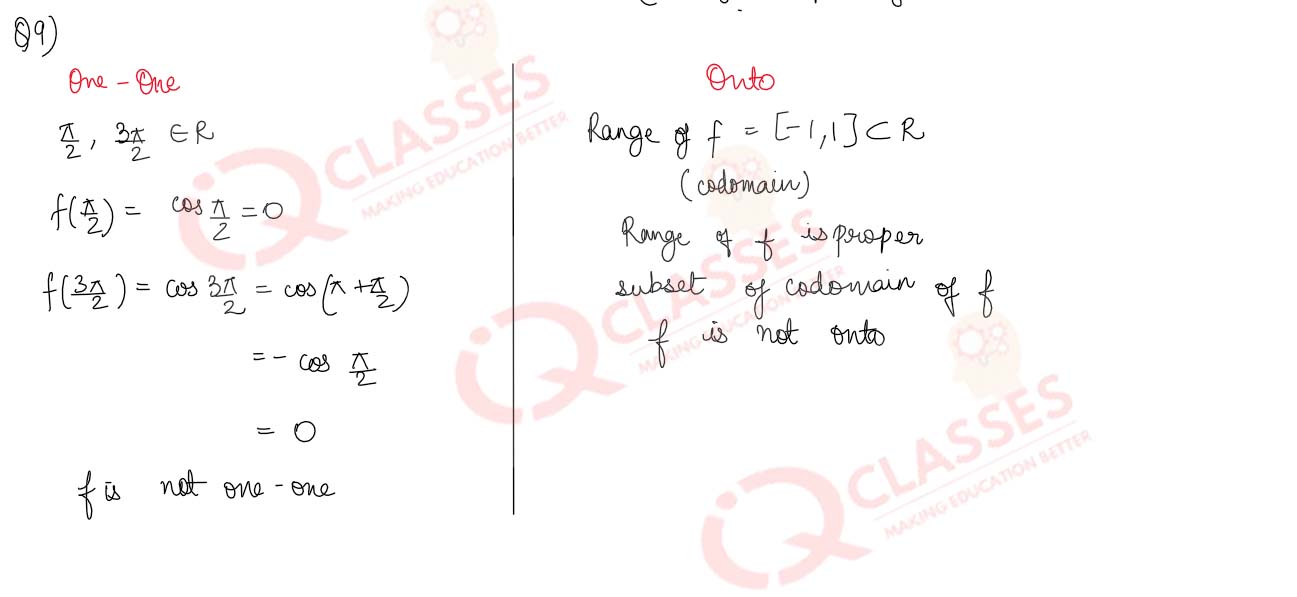 Q9)
One - One
π/2, 3π/2 ∈ R
f(π/2) = cos π/2 = 0
f(3π/2) = cos 3π/2 = cos(π + π/2)
= - cos π/2
= 0
f is not one-one
Onto
Range of f = [-1,1] ⊂ R
(codomain)
Range of f is proper
subset of codomain of f
f is not onto
iQ CLASSES
MAKING EDUCATION BETTER
iQ CLASSES
MAKING EDUCATION BETTER
iQ CLASSES
MAKING EDUCATION BETTER